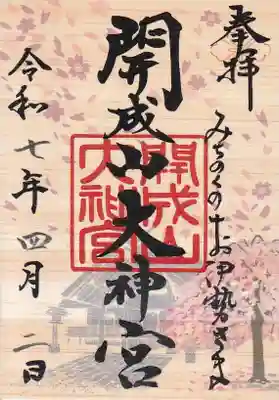 奉拝
みちのくのお伊勢さま
開成山大神宮
開成山
大神宮
令和七年四月二日